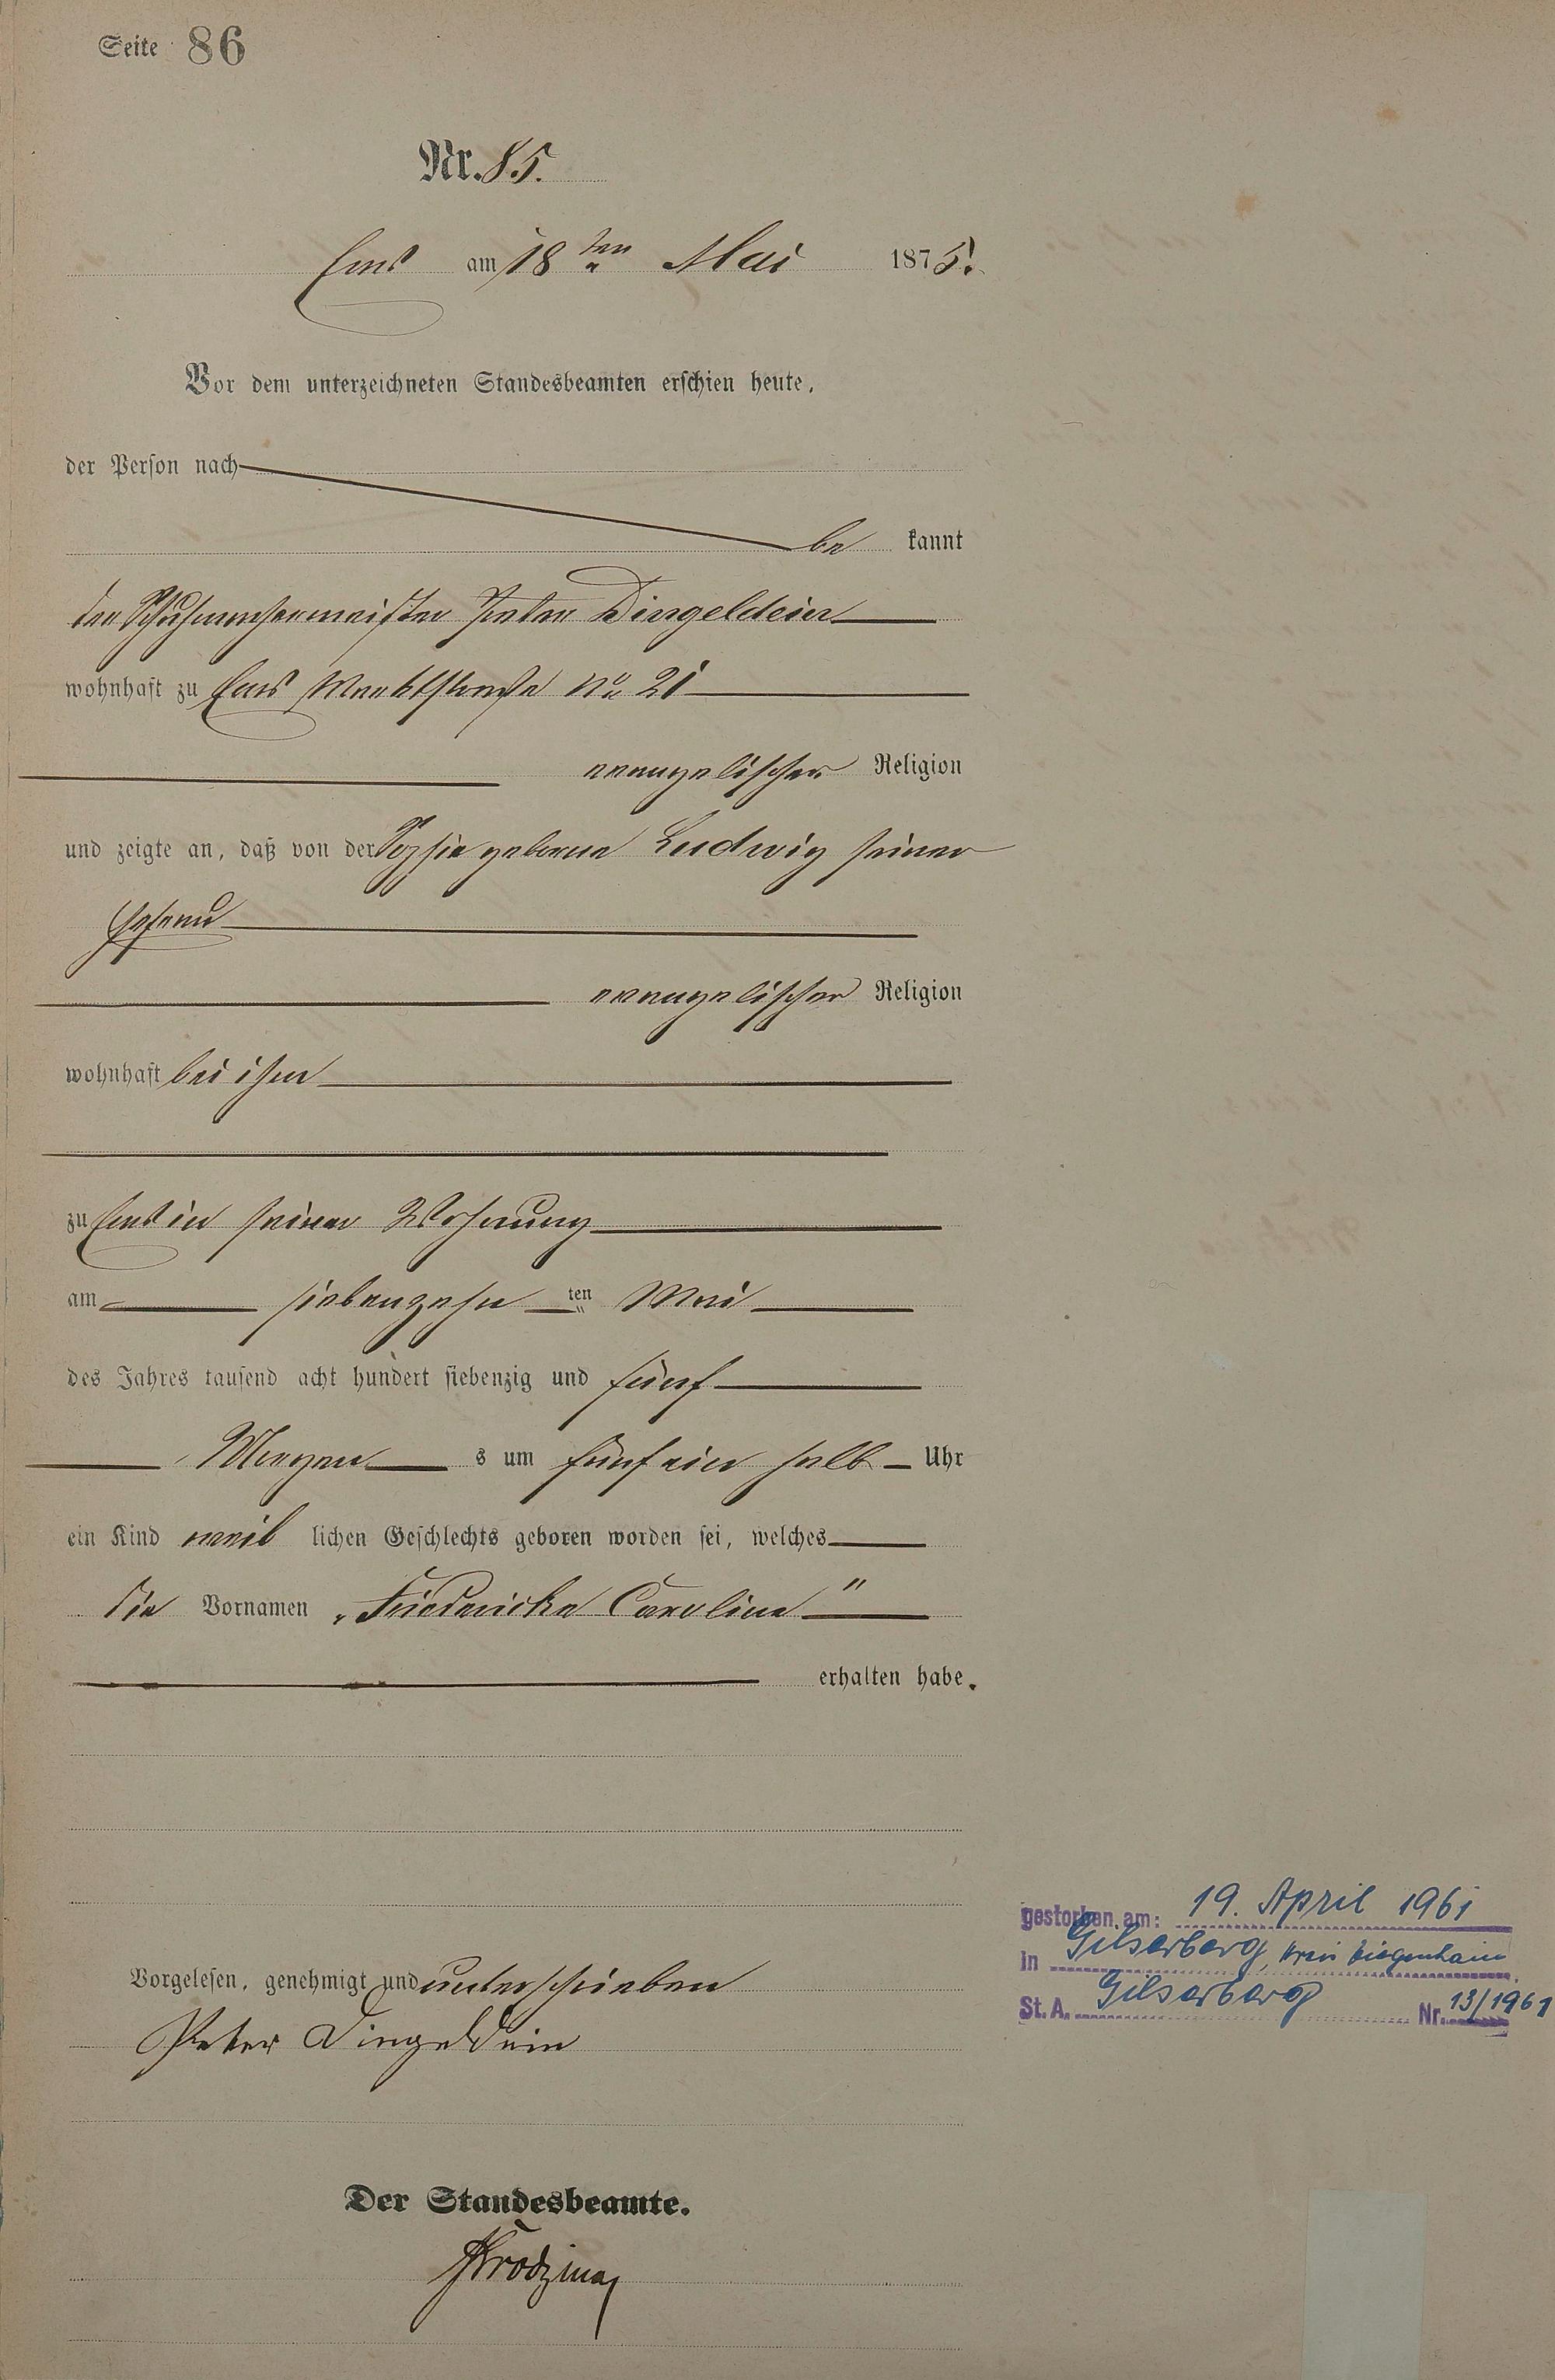 Seite 86
Nr. 85.
Ems am 18ten Mai 1875.
Vor dem unterzeichneten Standesbeamten erschien heute,
der Person nach
be kannt
der Schuhmachermeister Peter Dingeldein
wohnhaft zu Ems Marktstraße No 21
evangelischer Religion
und zeigte an, daß von der Sophie geborne Ludwig seiner
Ehefrau
evangelischer Religion
wohnhaft bei ihm
zu Ems in seiner Wohnung
am siebenzehn ten Mai
des Jahres tausend acht hundert siebenzig und fünf
Morgen s um fünf ein halb Uhr
ein Kind weib lichen Geschlechts geboren worden sei, welches
die Vornamen „Friedericke Caroline"
erhalten habe.
Vorgelesen, genehmigt und unterschrieben
Peter Dingeldein
Der Standesbeamte.
gestorben am: 19. April 1961
in Gilserberg, Kreis Ziegenhain
St. A. Gilserberg Nr. 13/1961